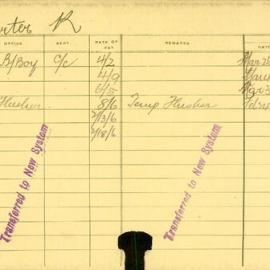 rter R
OFFICE DEPT. RATE OF PAY REMARKS DATE
B/Boy C/C 4/2
4/9
6/5
Flusher 8/6 Temp Flusher
2/13/6
2/18/6
Transferred to New System
Transferred to New System